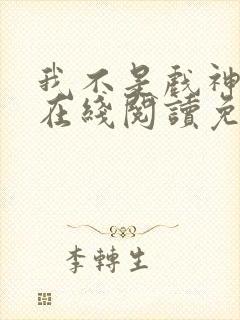 我不是戲神
在綫閱讀免
李轉生